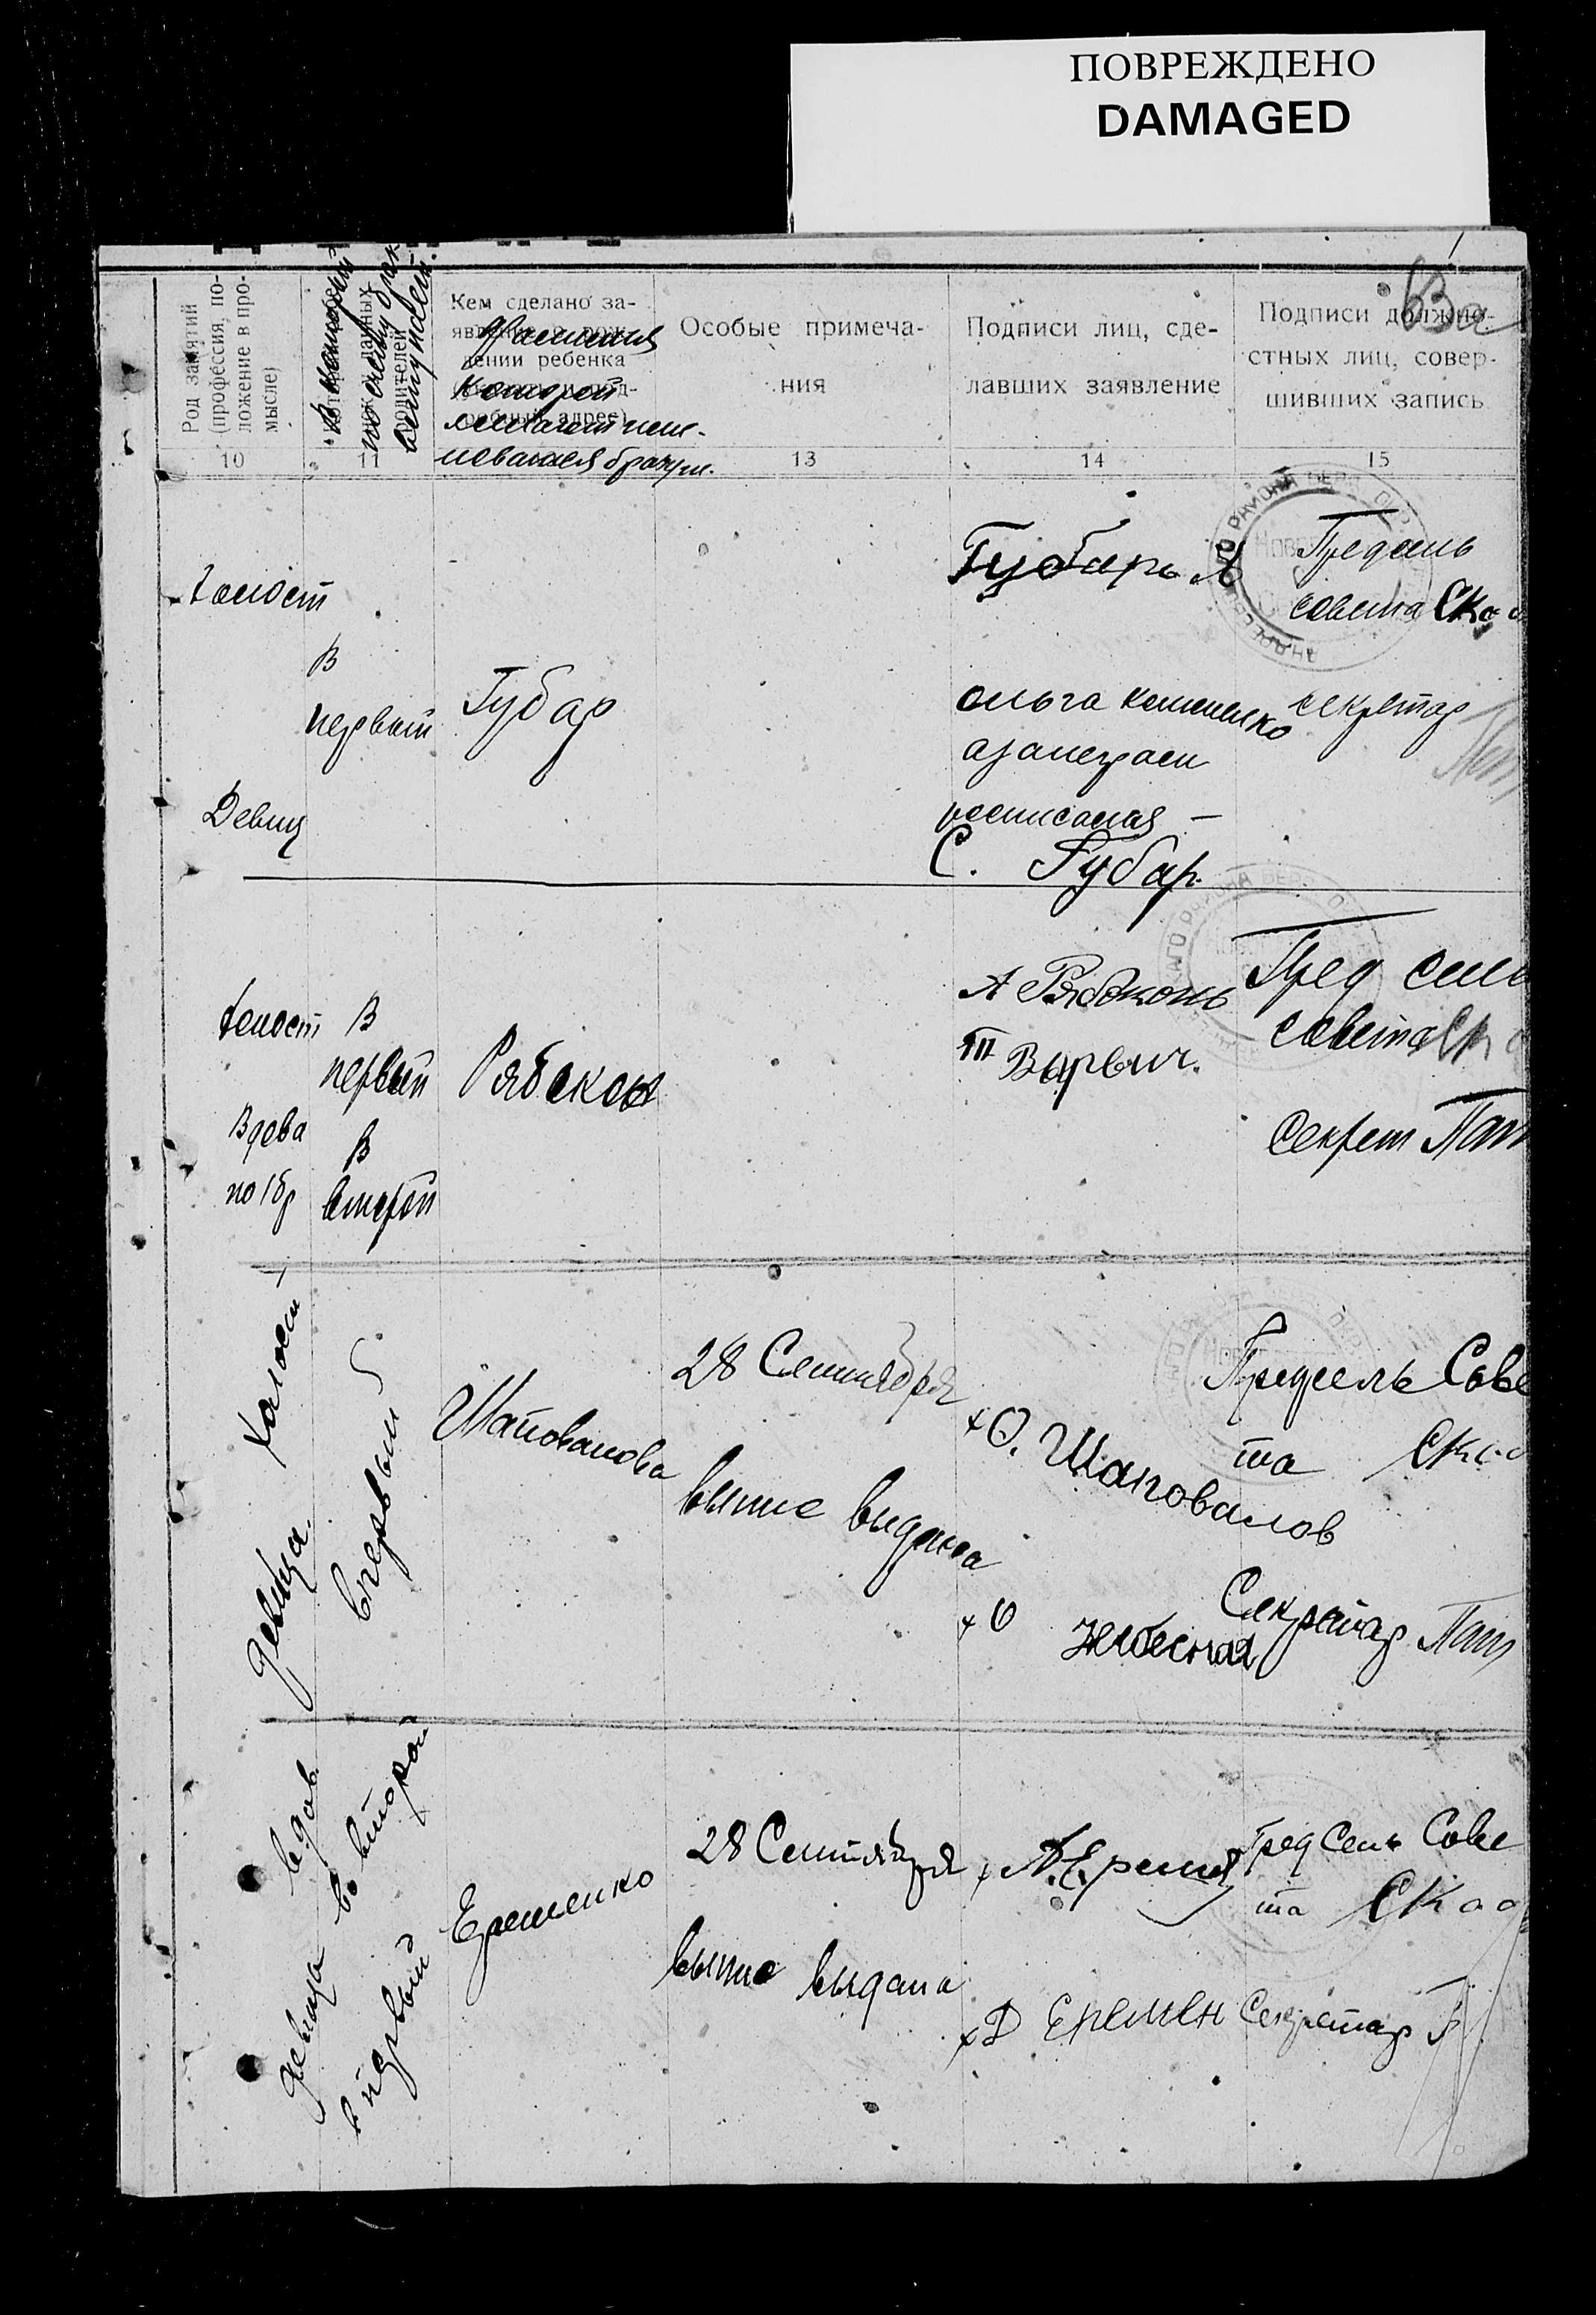 ПОВРЕЖДЕНО
DAMAGED
63а
Род занятий
(профессия, по-
ложение в про-
мысле)
В который
по счету брак
вступает.
Кем сделано за-
дении ребенка
адрес)
Фамилия
которой
желают име-
новаться брачущ.
Особые примеча-
ния
Подписи лиц, сде-
лавших заявление
Подписи должно-
стных лиц, совер-
шивших запись
10
11
13
14
15
Холост
Девиц
В
первый
Губар
Губарь А
ольга
росписалая —
С. Губар.
Предсель
совета Ска
секретар
Холост
Вдова
по 1 бр
В
первый
В
второй
Рябокон
А Рябоконь
П Вырвич.
Пред сель
совета Ск
Секрет Пат
Холост
девица.
впервый
Шаповалова
28 Сентября
выпис выдана
+О. Шаповалов
+О Небесная
Предсель Сове
та Ска
Секретар Пат
вдов.
девица
во второй
в первый
Еременко
28 Сентября
выпис выдана
А. Ереме
х Д Еремен
Пред Сель Сове
та Скад
Секретар П